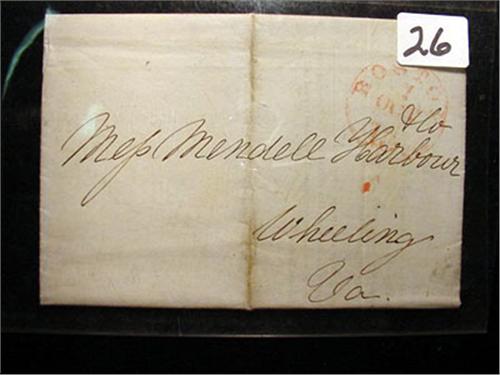 26
BOSTON
& Co
Mess Mendell Harbour
Wheeling
Va.